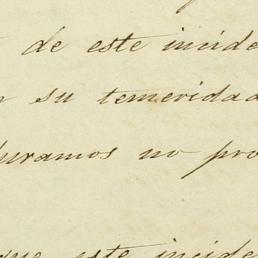 de este incide
su temeridad
uramos no pro
que este incide